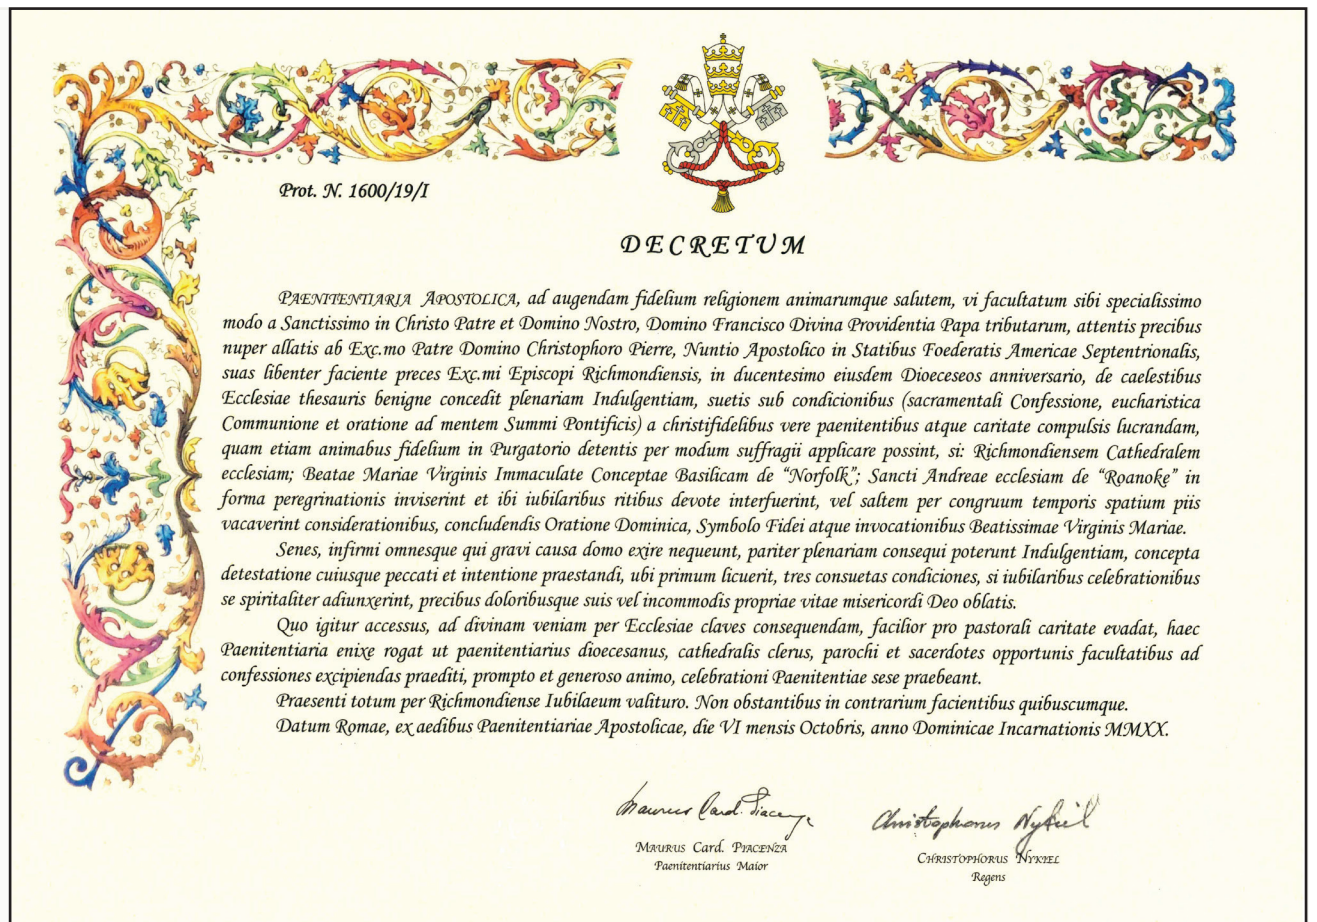 Prot. N. 1600/19/I
DECRETUM
PAENITENTIARIA APOSTOLICA, ad augendam fidelium religionem animarumque salutem, vi facultatum sibi specialissimo
modo a Sanctissimo in Christo Patre et Domino Nostro, Domino Francisco Divina Providentia Papa tributarum, attentis precibus
nuper allatis ab Exc.mo Patre Domino Christophoro Pierre, Nuntio Apostolico in Statibus Foederatis Americae Septentrionalis,
suas libenter faciente preces Exc.mi Episcopi Richmondiensis, in ducentesimo eiusdem Dioeceseos anniversario, de caelestibus
Ecclesiae thesauris benigne concedit plenariam Indulgentiam, suetis sub condicionibus (sacramentali Confessione, eucharistica
Communione et oratione ad mentem Summi Pontificis) a christifidelibus vere paenitentibus atque caritate compulsis lucrandam,
quam etiam animabus fidelium in Purgatorio detentis per modum suffragii applicare possint, si: Richmondiensem Cathedralem
ecclesiam; Beatae Mariae Virginis Immaculate Conceptae Basilicam de “Norfolk”; Sancti Andreae ecclesiam de “Roanoke” in
forma peregrinationis inviserint et ibi iubilaribus ritibus devote interfuerint, vel saltem per congruum temporis spatium piis
vacaverint considerationibus, concludendis Oratione Dominica, Symbolo Fidei atque invocationibus Beatissimae Virginis Mariae.
Senes, infirmi omnesque qui gravi causa domo exire nequeunt, pariter plenariam consequi poterunt Indulgentiam, concepta
detestatione cuiusque peccati et intentione praestandi, ubi primum licuerit, tres consuetas condiciones, si iubilaribus celebrationibus
se spiritaliter adiunxerint, precibus doloribusque suis vel incommodis propriae vitae misericordi Deo oblatis.
Quo igitur accessus, ad divinam veniam per Ecclesiae claves consequendam, facilior pro pastorali caritate evadat, haec
Paenitentiaria enixe rogat ut paenitentiarius dioecesanus, cathedralis clerus, parochi et sacerdotes opportunis facultatibus ad
confessiones excipiendas praediti, prompto et generoso animo, celebrationi Paenitentiae sese praebeant.
Praesenti totum per Richmondiense Iubilaeum valituro. Non obstantibus in contrarium facientibus quibuscumque.
Datum Romae, ex aedibus Paenitentiariae Apostolicae, die VI mensis Octobris, anno Dominicae Incarnationis MMXX.
Maurus Card. Piacenza
Christophorus Nykiel
MAURUS Card. PIACENZA
Paenitentiarius Maior
CHRISTOPHORUS NYKIEL
Regens